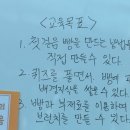 <교육목표>
1. 첫걸음 빵을 만드는 방법을
직접 만들 수 있다.
2. 퀴즈를 풀면서, 빵에
배경지식을 쌓을 수 있다.
3. 빵과 뇌
브런치를 만들 수 있다.